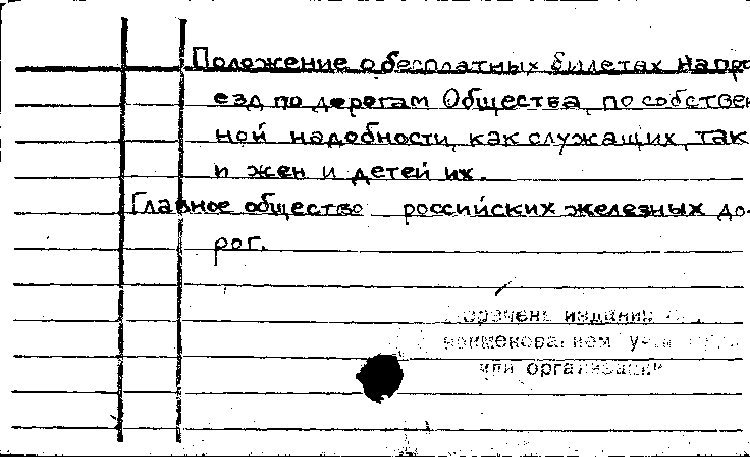 Положение о бесплатных билетах на про
езд по дорогам Общества, по собствен
ной надобности, как служащих, так
и жен и детей их.
Главное общество российских железных до-
рог.
издании
или организации